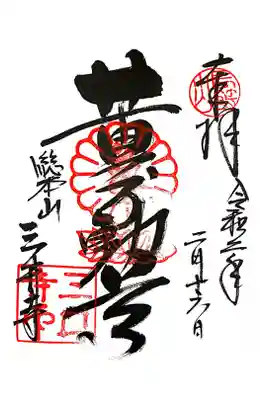 奉拝
令和二年
二月廿六日
黄不動尊
総本山
三井寺